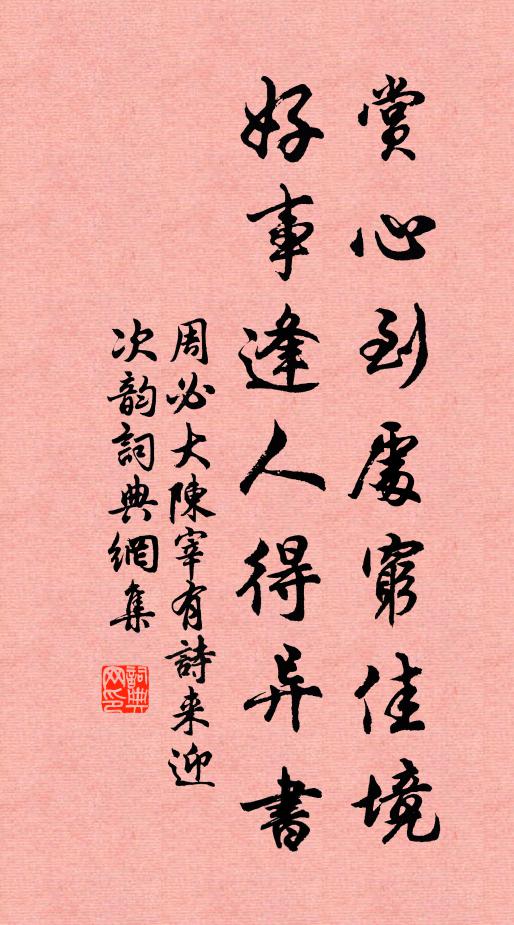 賞心到處窮佳境
好事逢人得异書
周必大陳宰有詩来迎
次韵詞典網集
詞典网印